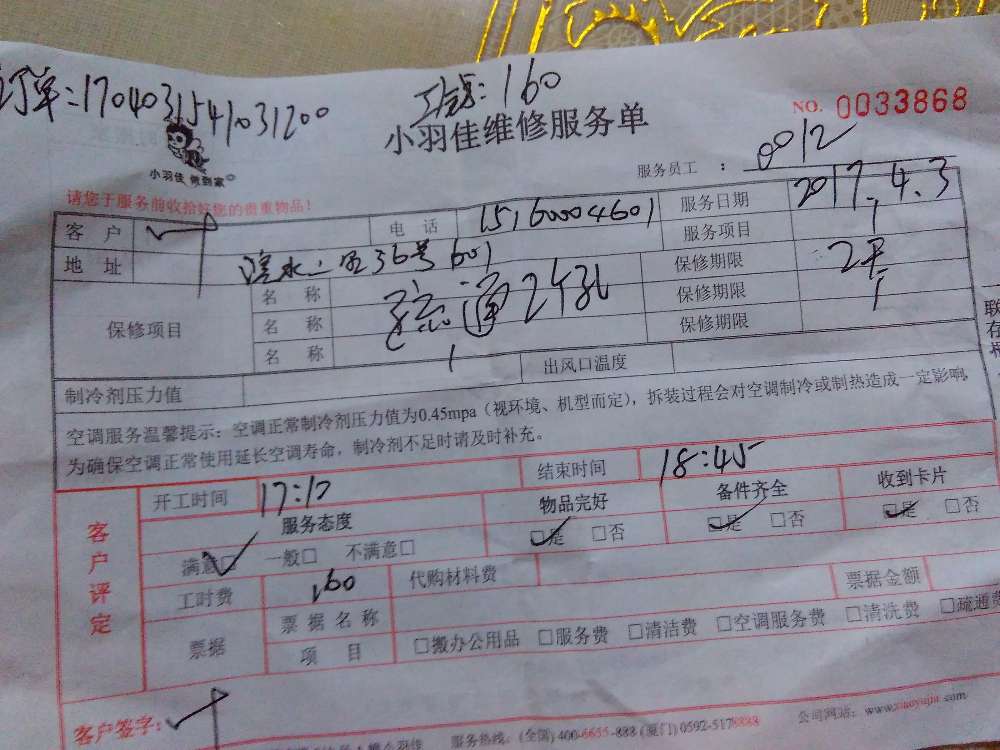 订单:1704031541031200
工号: 160
小羽佳维修服务单
NO. 0033868
小羽佳 做到家
服务员工 : 0012
请您于服务前收拾好您的贵重物品!
客 户 电 话 15160004601 服务日期 2017.4.3
服务项目
地 址 二里36号601 保修期限 2天
保修项目 名 称 疏通2个孔 保修期限
名 称 保修期限
名 称
制冷剂压力值 出风口温度
空调服务温馨提示:空调正常制冷剂压力值为0.45mpa(视环境、机型而定),拆装过程会对空调制冷或制热造成一定影响,
为确保空调正常使用延长空调寿命,制冷剂不足时请及时补充。
客户评定
开工时间 17:17 结束时间 18:45
服务态度 物品完好 备件齐全 收到卡片
满意 一般□ 不满意□ □是 □否 □是 □否 □是 □否
工时费 160 代购材料费 票据金额
票据 票 据 名 称
项 目 □搬办公用品 □服务费 □清洁费 □空调服务费 □清洗费 □疏通费
客户签字:
服务热线:(全国) 400-6655-888 (厦门) 0592-5178888 公司网站:www.xiaoyujia.com
联
在